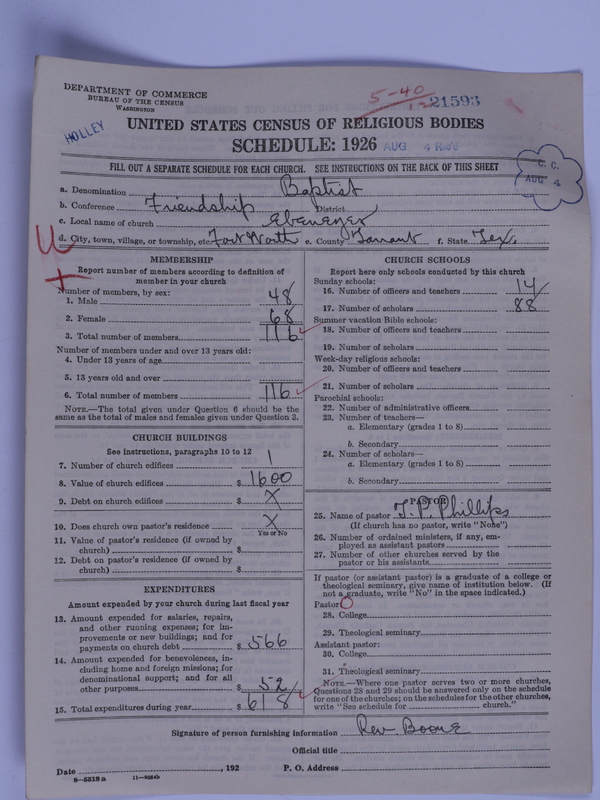 DEPARTMENT OF COMMERCE
BUREAU OF THE CENSUS
WASHINGTON
5-40
21593
HOLLEY
UNITED STATES CENSUS OF RELIGIOUS BODIES
SCHEDULE: 1926
AUG 4 Rec'd
C. C.
AUG 4
FILL OUT A SEPARATE SCHEDULE FOR EACH CHURCH. SEE INSTRUCTIONS ON THE BACK OF THIS SHEET
a. Denomination Baptist
b. Conference Friendship District
c. Local name of church Ebenezer
d. City, town, village, or township, etc. Fort Worth e. County Tarrant f. State Tex.
MEMBERSHIP
Report number of members according to definition of
member in your church
Number of members, by sex:
1. Male 48
2. Female 68
3. Total number of members 116
Number of members under and over 13 years old:
4. Under 13 years of age
5. 13 years old and over
6. Total number of members 116
NOTE.—The total given under Question 6 should be the
same as the total of males and females given under Question 3.
CHURCH BUILDINGS
See instructions, paragraphs 10 to 12
7. Number of church edifices 1
8. Value of church edifices $ 1600
9. Debt on church edifices $ X
10. Does church own pastor's residence X
Yes or No
11. Value of pastor's residence (if owned by
church) $
12. Debt on pastor's residence (if owned by
church) $
EXPENDITURES
Amount expended by your church during last fiscal year
13. Amount expended for salaries, repairs,
and other running expenses; for im-
provements or new buildings; and for
payments on church debt $ 566
14. Amount expended for benevolences, in-
cluding home and foreign missions; for
denominational support; and for all
other purposes $ 52
15. Total expenditures during year $ 618
CHURCH SCHOOLS
Report here only schools conducted by this church
Sunday schools:
16. Number of officers and teachers 14
17. Number of scholars 88
Summer vacation Bible schools:
18. Number of officers and teachers
19. Number of scholars
Week-day religious schools:
20. Number of officers and teachers
21. Number of scholars
Parochial schools:
22. Number of administrative officers
23. Number of teachers—
a. Elementary (grades 1 to 8)
b. Secondary
24. Number of scholars—
a. Elementary (grades 1 to 8)
b. Secondary
PASTOR
25. Name of pastor T. P. Phillips
(If church has no pastor, write "None")
26. Number of ordained ministers, if any, em-
ployed as assistant pastors
27. Number of other churches served by the
pastor or his assistants
If pastor (or assistant pastor) is a graduate of a college or
theological seminary, give name of institution below. (If
not a graduate, write "No" in the space indicated.)
Pastor:
28. College
29. Theological seminary
Assistant pastor:
30. College
31. Theological seminary
NOTE.—Where one pastor serves two or more churches,
Questions 28 and 29 should be answered only on the schedule
for one of the churches; on the schedules for the other churches,
write "See schedule for church."
Signature of person furnishing information Rev Boone
Official title
Date , 192 P. O. Address
8—5518 a 11—9054b